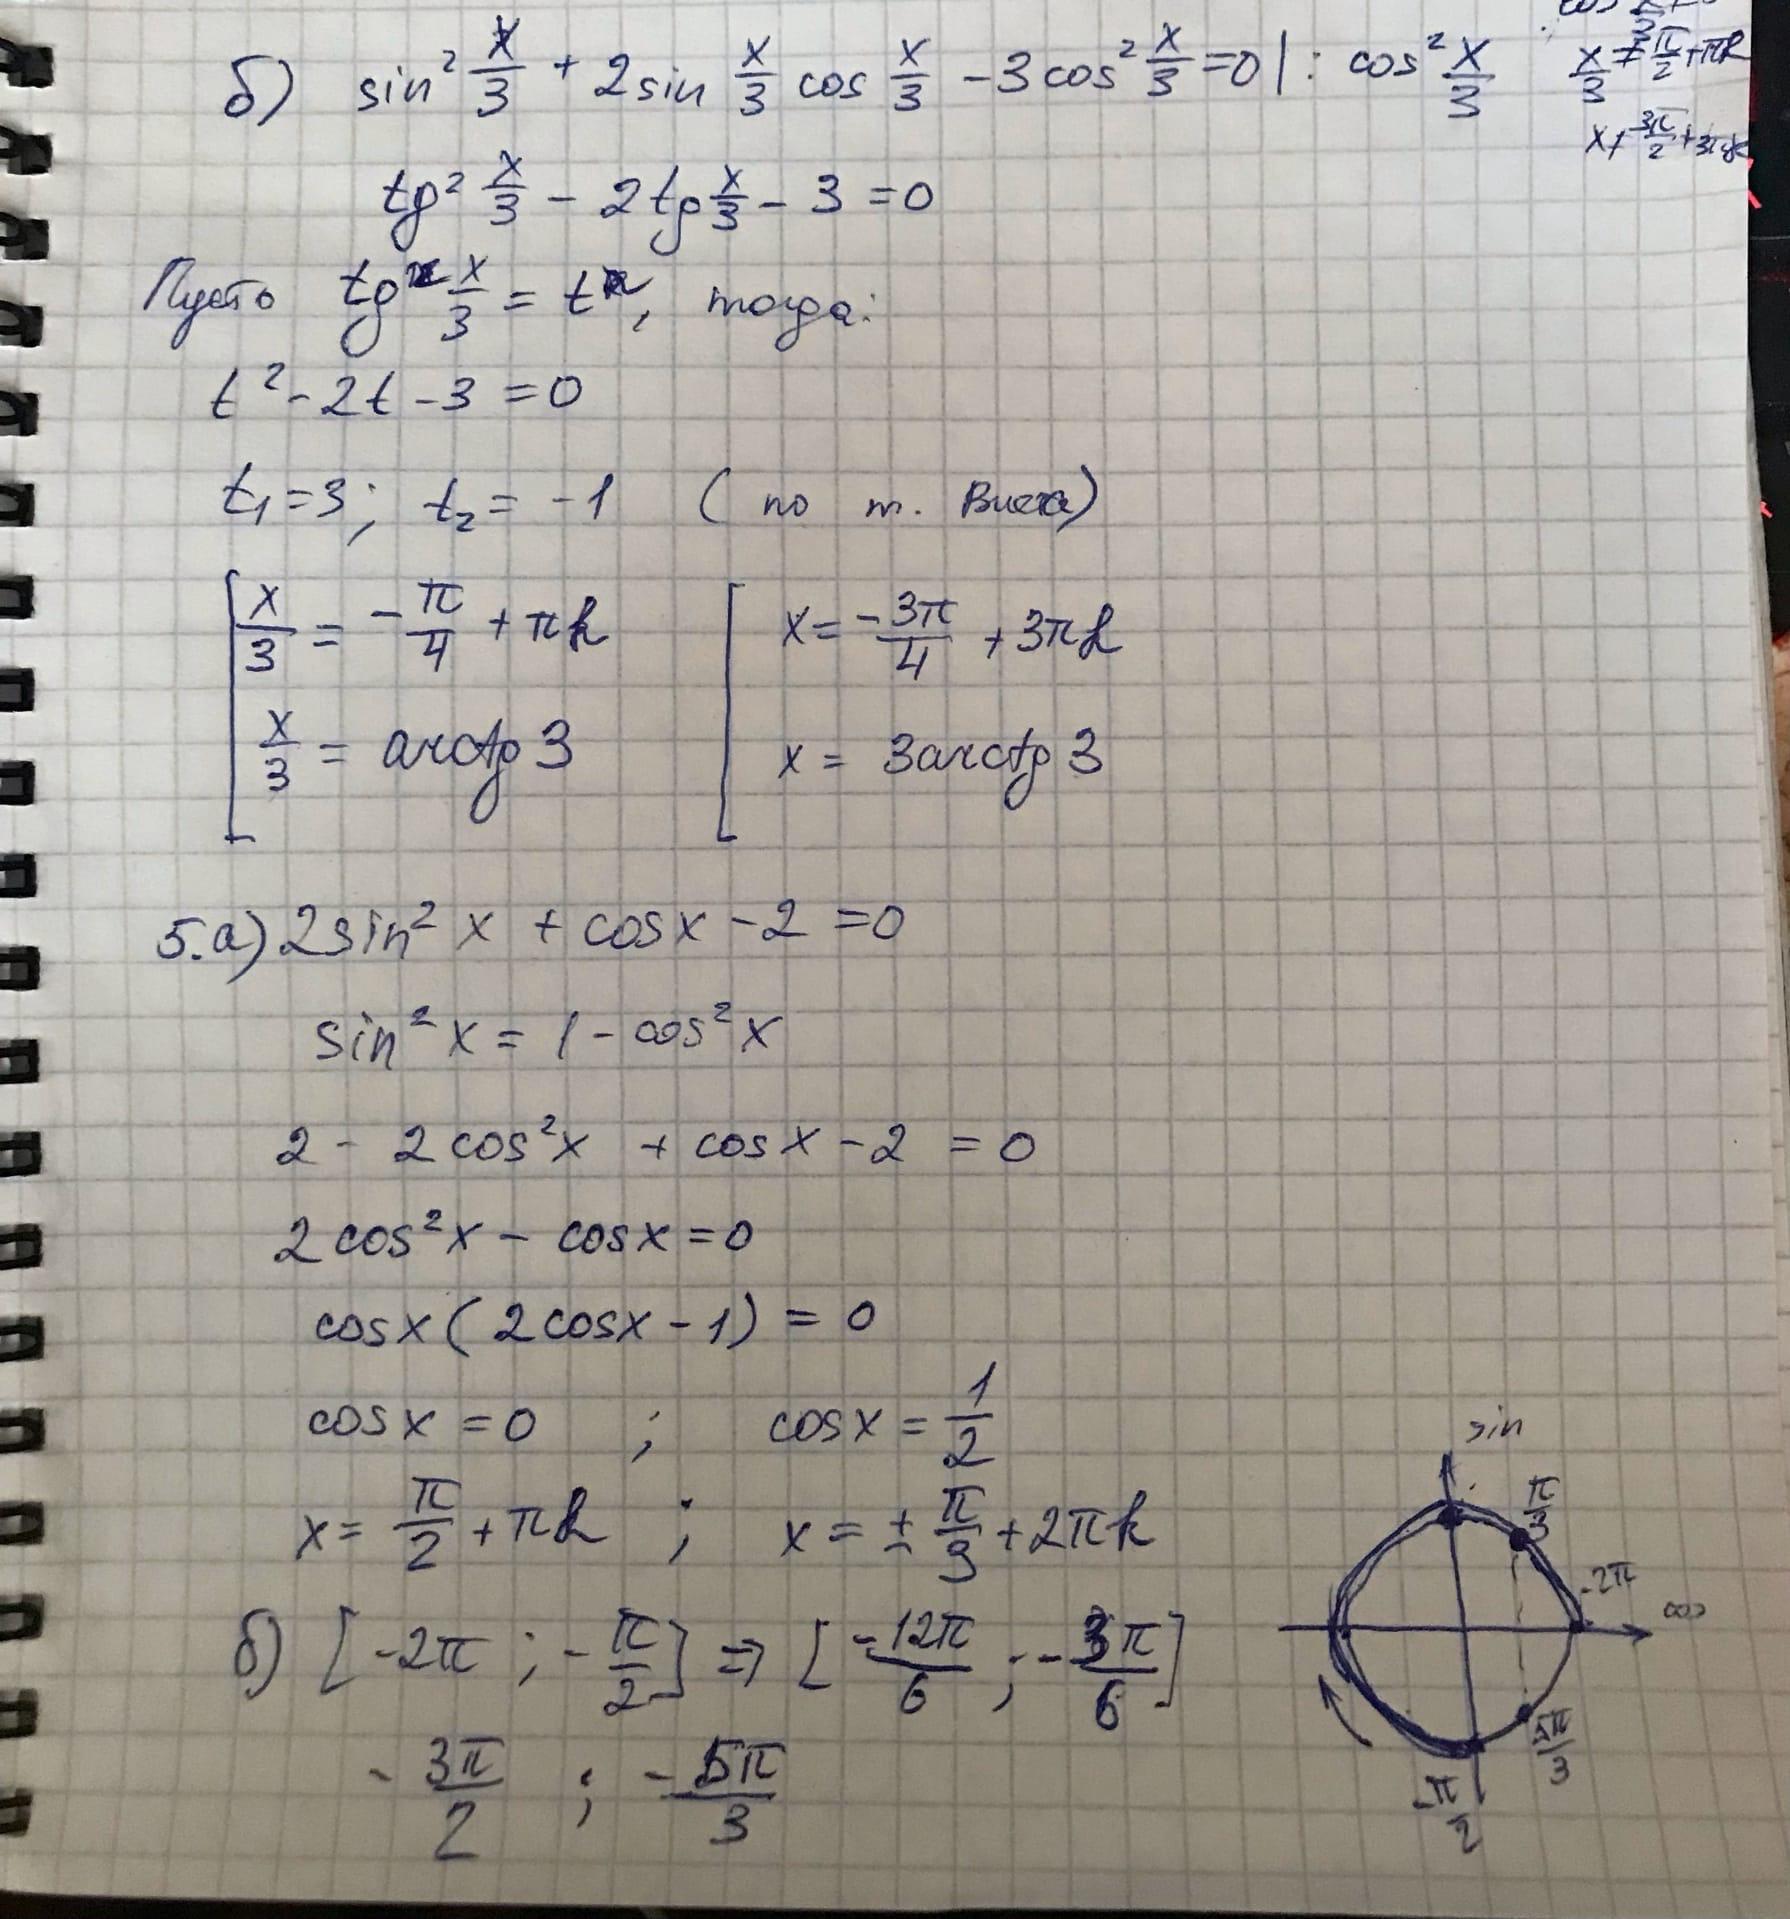 б) sin² x/3 + 2sin x/3 cos x/3 - 3cos² x/3 = 0 | : cos² x/3
x/3 ≠ π/2 + πk
x ≠ 3π/2 + 3πk
tg² x/3 - 2tg x/3 - 3 = 0
Пусть tg x/3 = t, тогда:
t² - 2t - 3 = 0
t₁ = 3; t₂ = -1 (по т. Виета)
[ x/3 = -π/4 + πk [ x = -3π/4 + 3πk
x/3 = arctg 3 x = 3arctg 3
5.а) 2sin² x + cosx - 2 = 0
sin² x = 1 - cos² x
2 - 2cos²x + cosx - 2 = 0
2cos²x - cosx = 0
cosx(2cosx - 1) = 0
cosx = 0 ; cosx = 1/2
x = π/2 + πk ; x = ± π/3 + 2πk
б) [-2π ; -π/2] ⇒ [-12π/6 ; -3π/6]
-3π/2 ; -5π/3
sin
π/3
-2π
cos
5π/3
-π/2